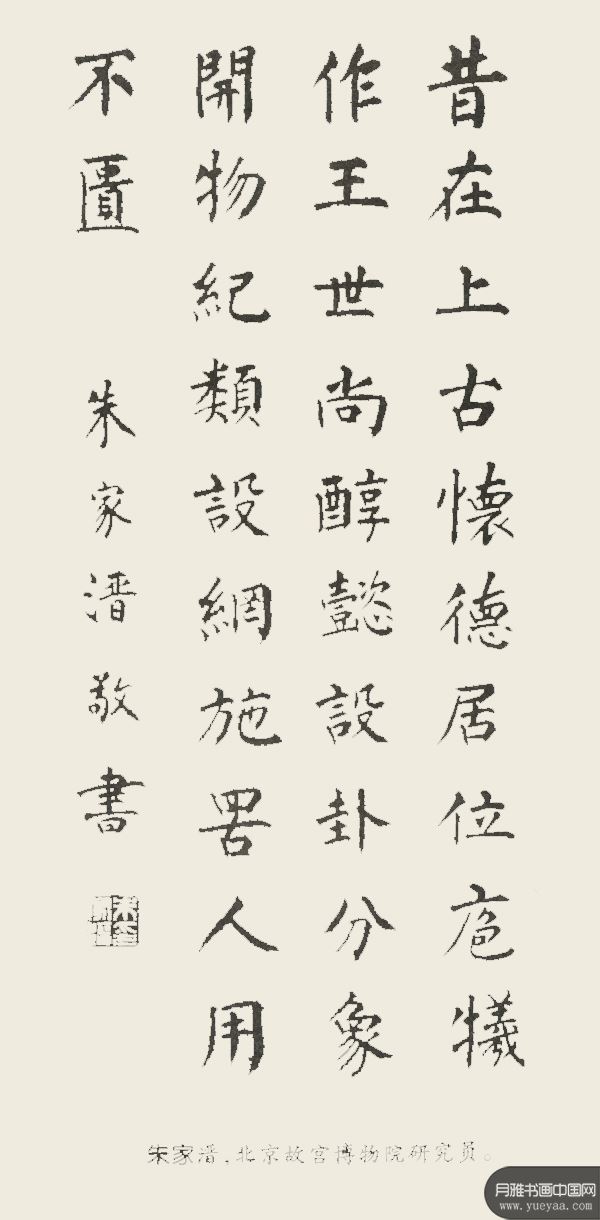 昔在上古懷德居位庖犧
作王世尚醇懿設卦分象
開物紀類設網施罟人用
不匱
朱家溍敬書
朱家溍，北京故宫博物院研究员。
月雅书画中国网
www.yueyaa.com